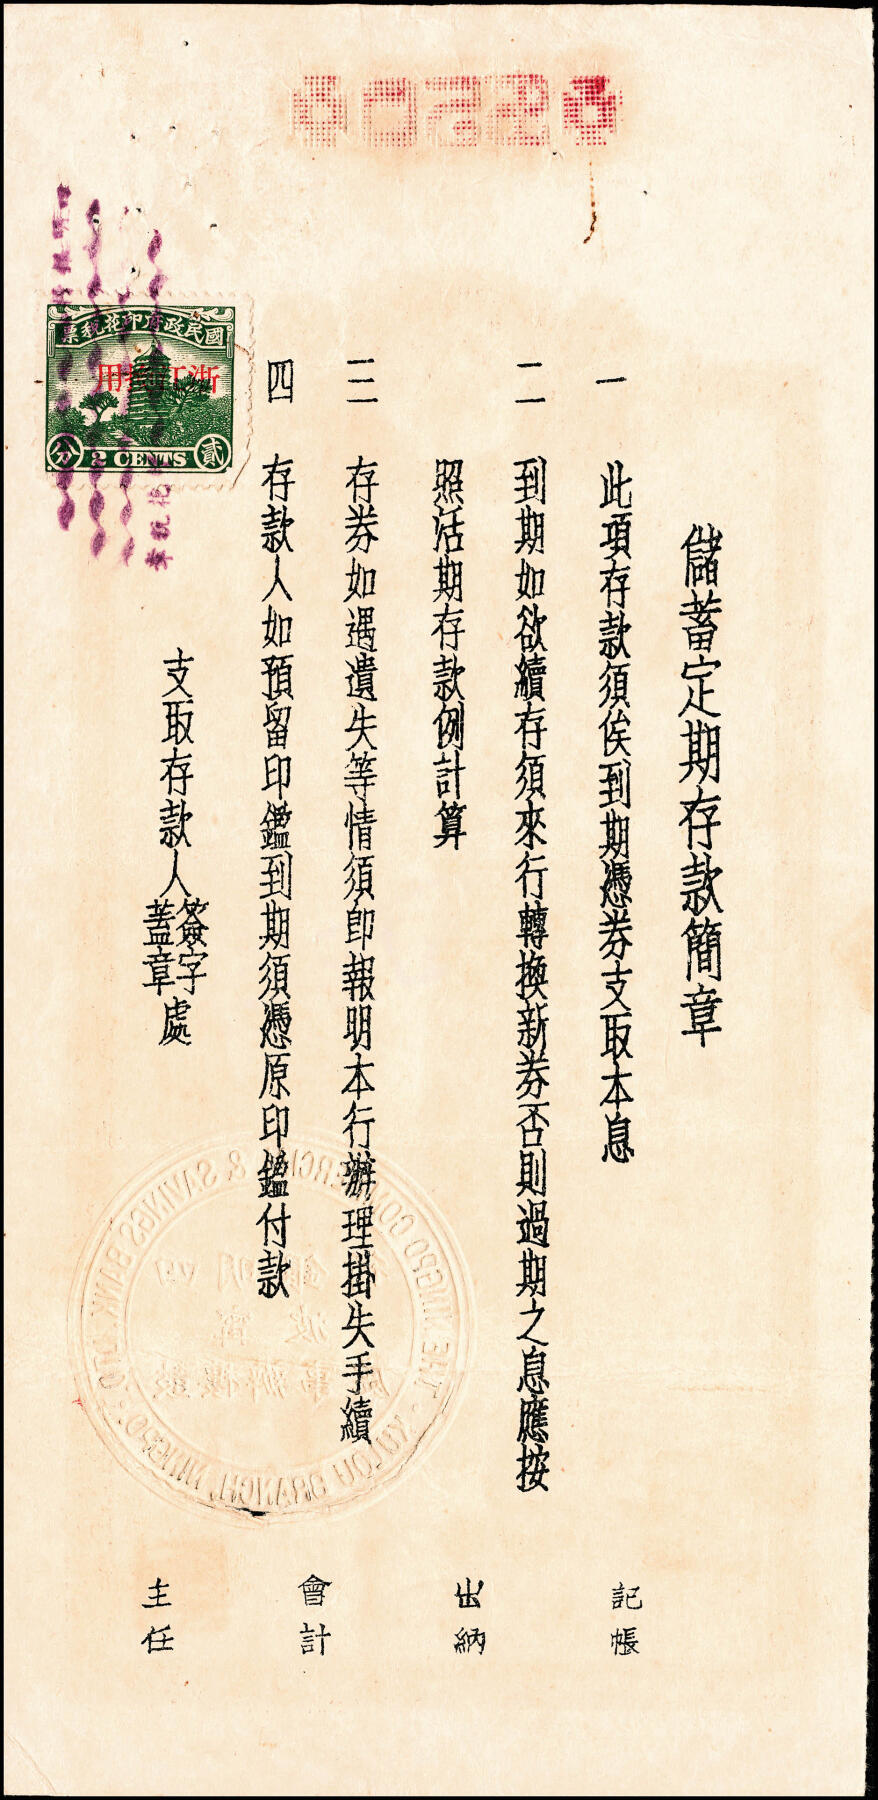 儲蓄定期存款簡章
一 此項存款須俟到期憑券支取本息
二 到期如欲續存須來行轉換新券否則過期之息應按
照活期存款例計算
三 存券如遇遺失等情須卽報明本行辦理掛失手續
四 存款人如預留印鑑到期須憑原印鑑付款
支取存款人簽字蓋章處
記帳
出納
會計
主任
國民政府印花稅票
2 CENTS
貳
分
THE NINGPO COMMERCIAL & SAVINGS BANK, LTD.
KULOU BRANCH, NINGPO